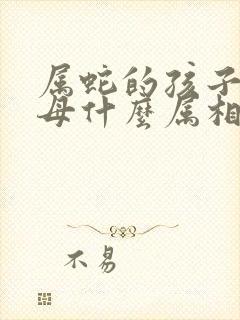 属蛇的孩子
母什麼属相
不易